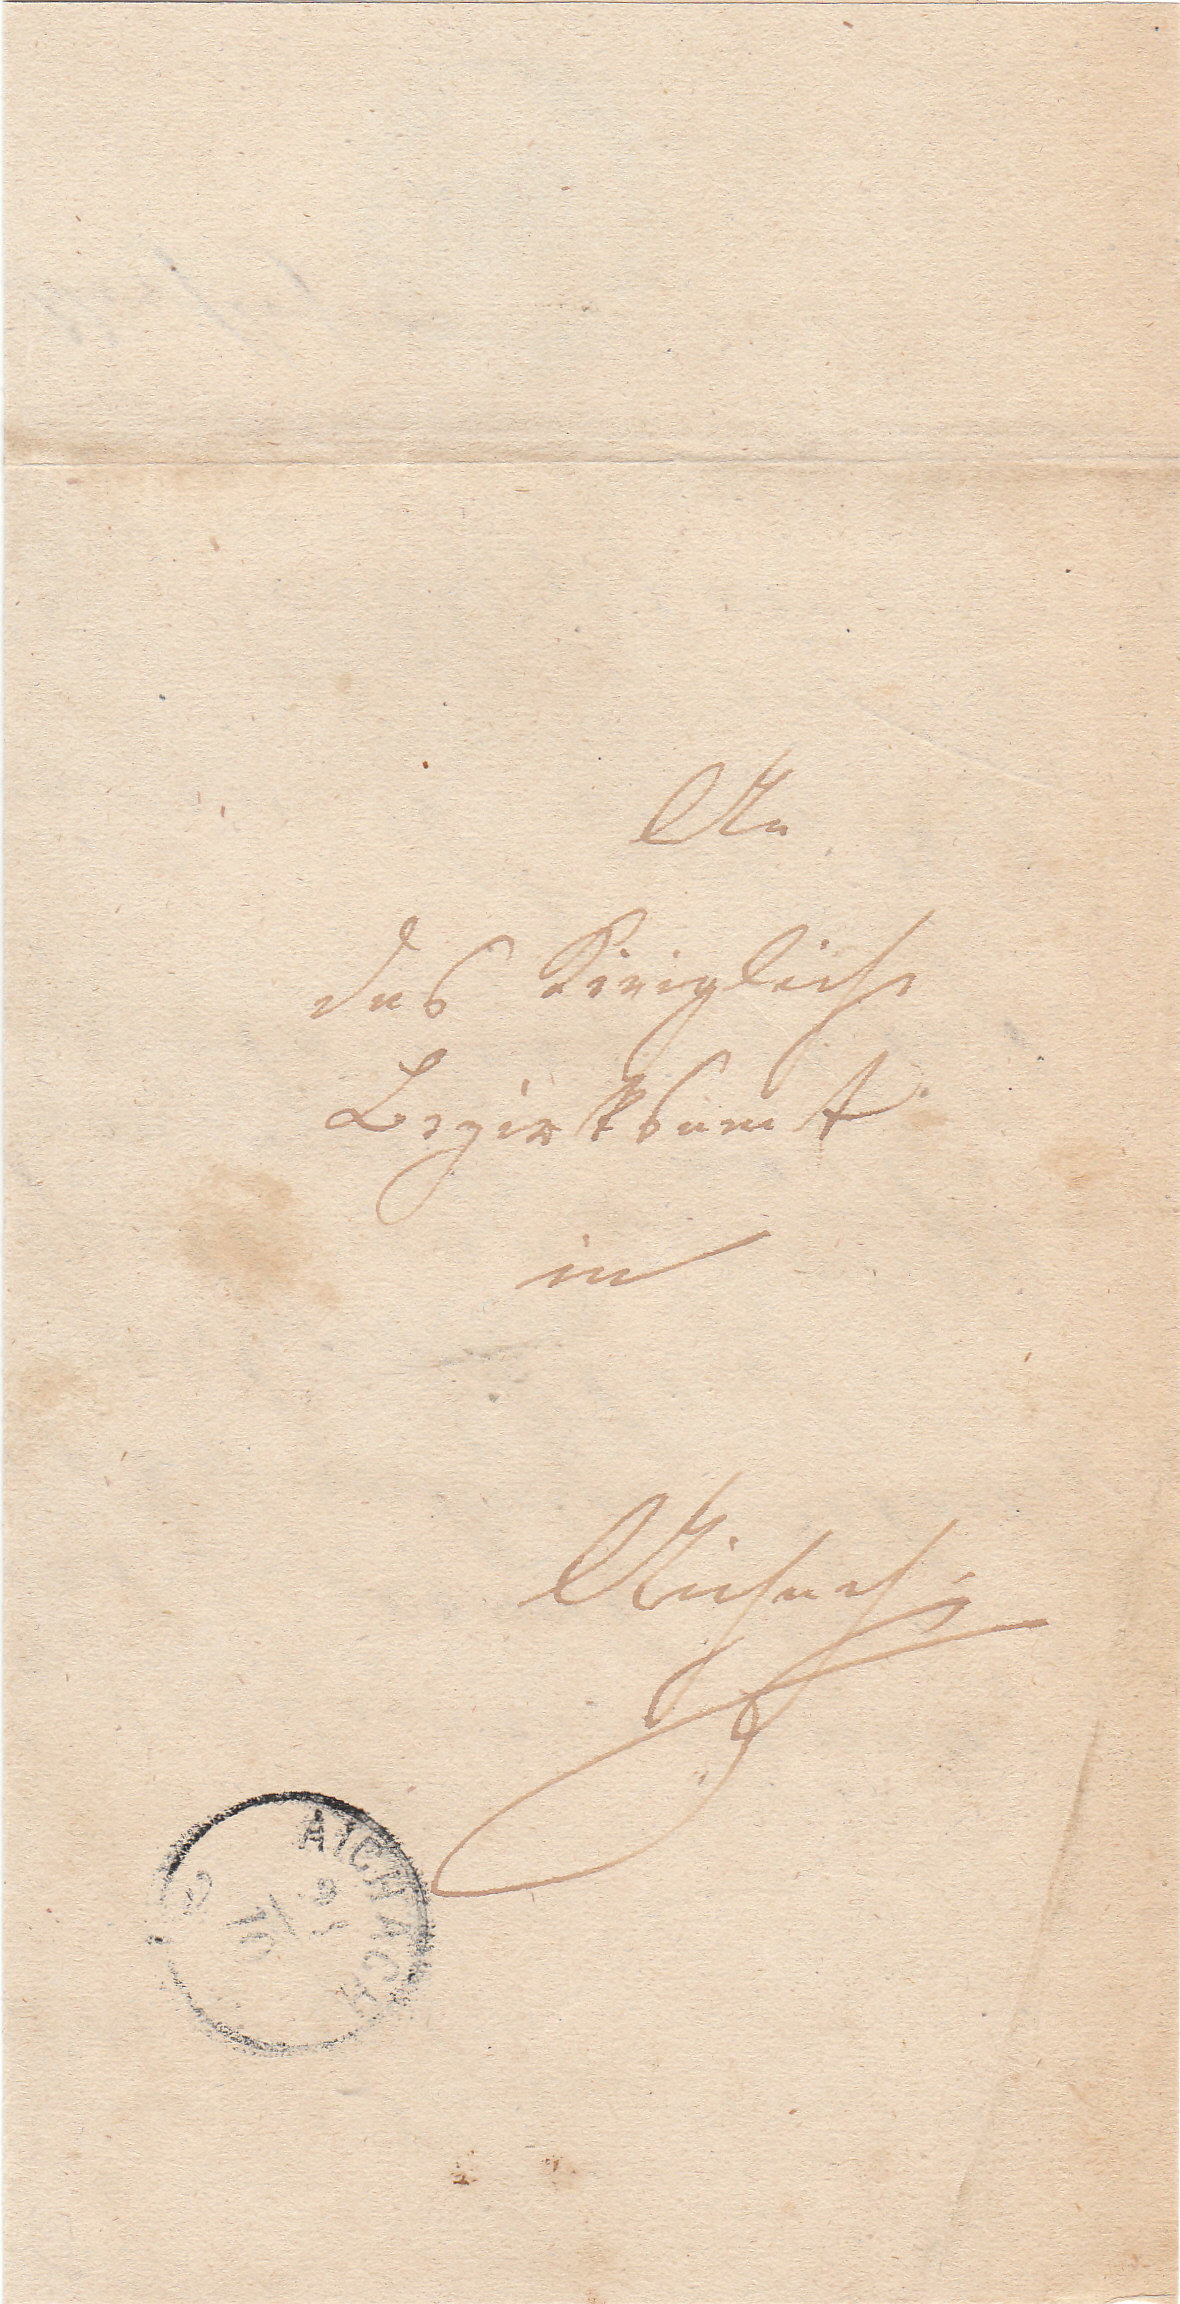 An
das Königliche
Bezirksamt
in
Aichach.
AICHACH
10